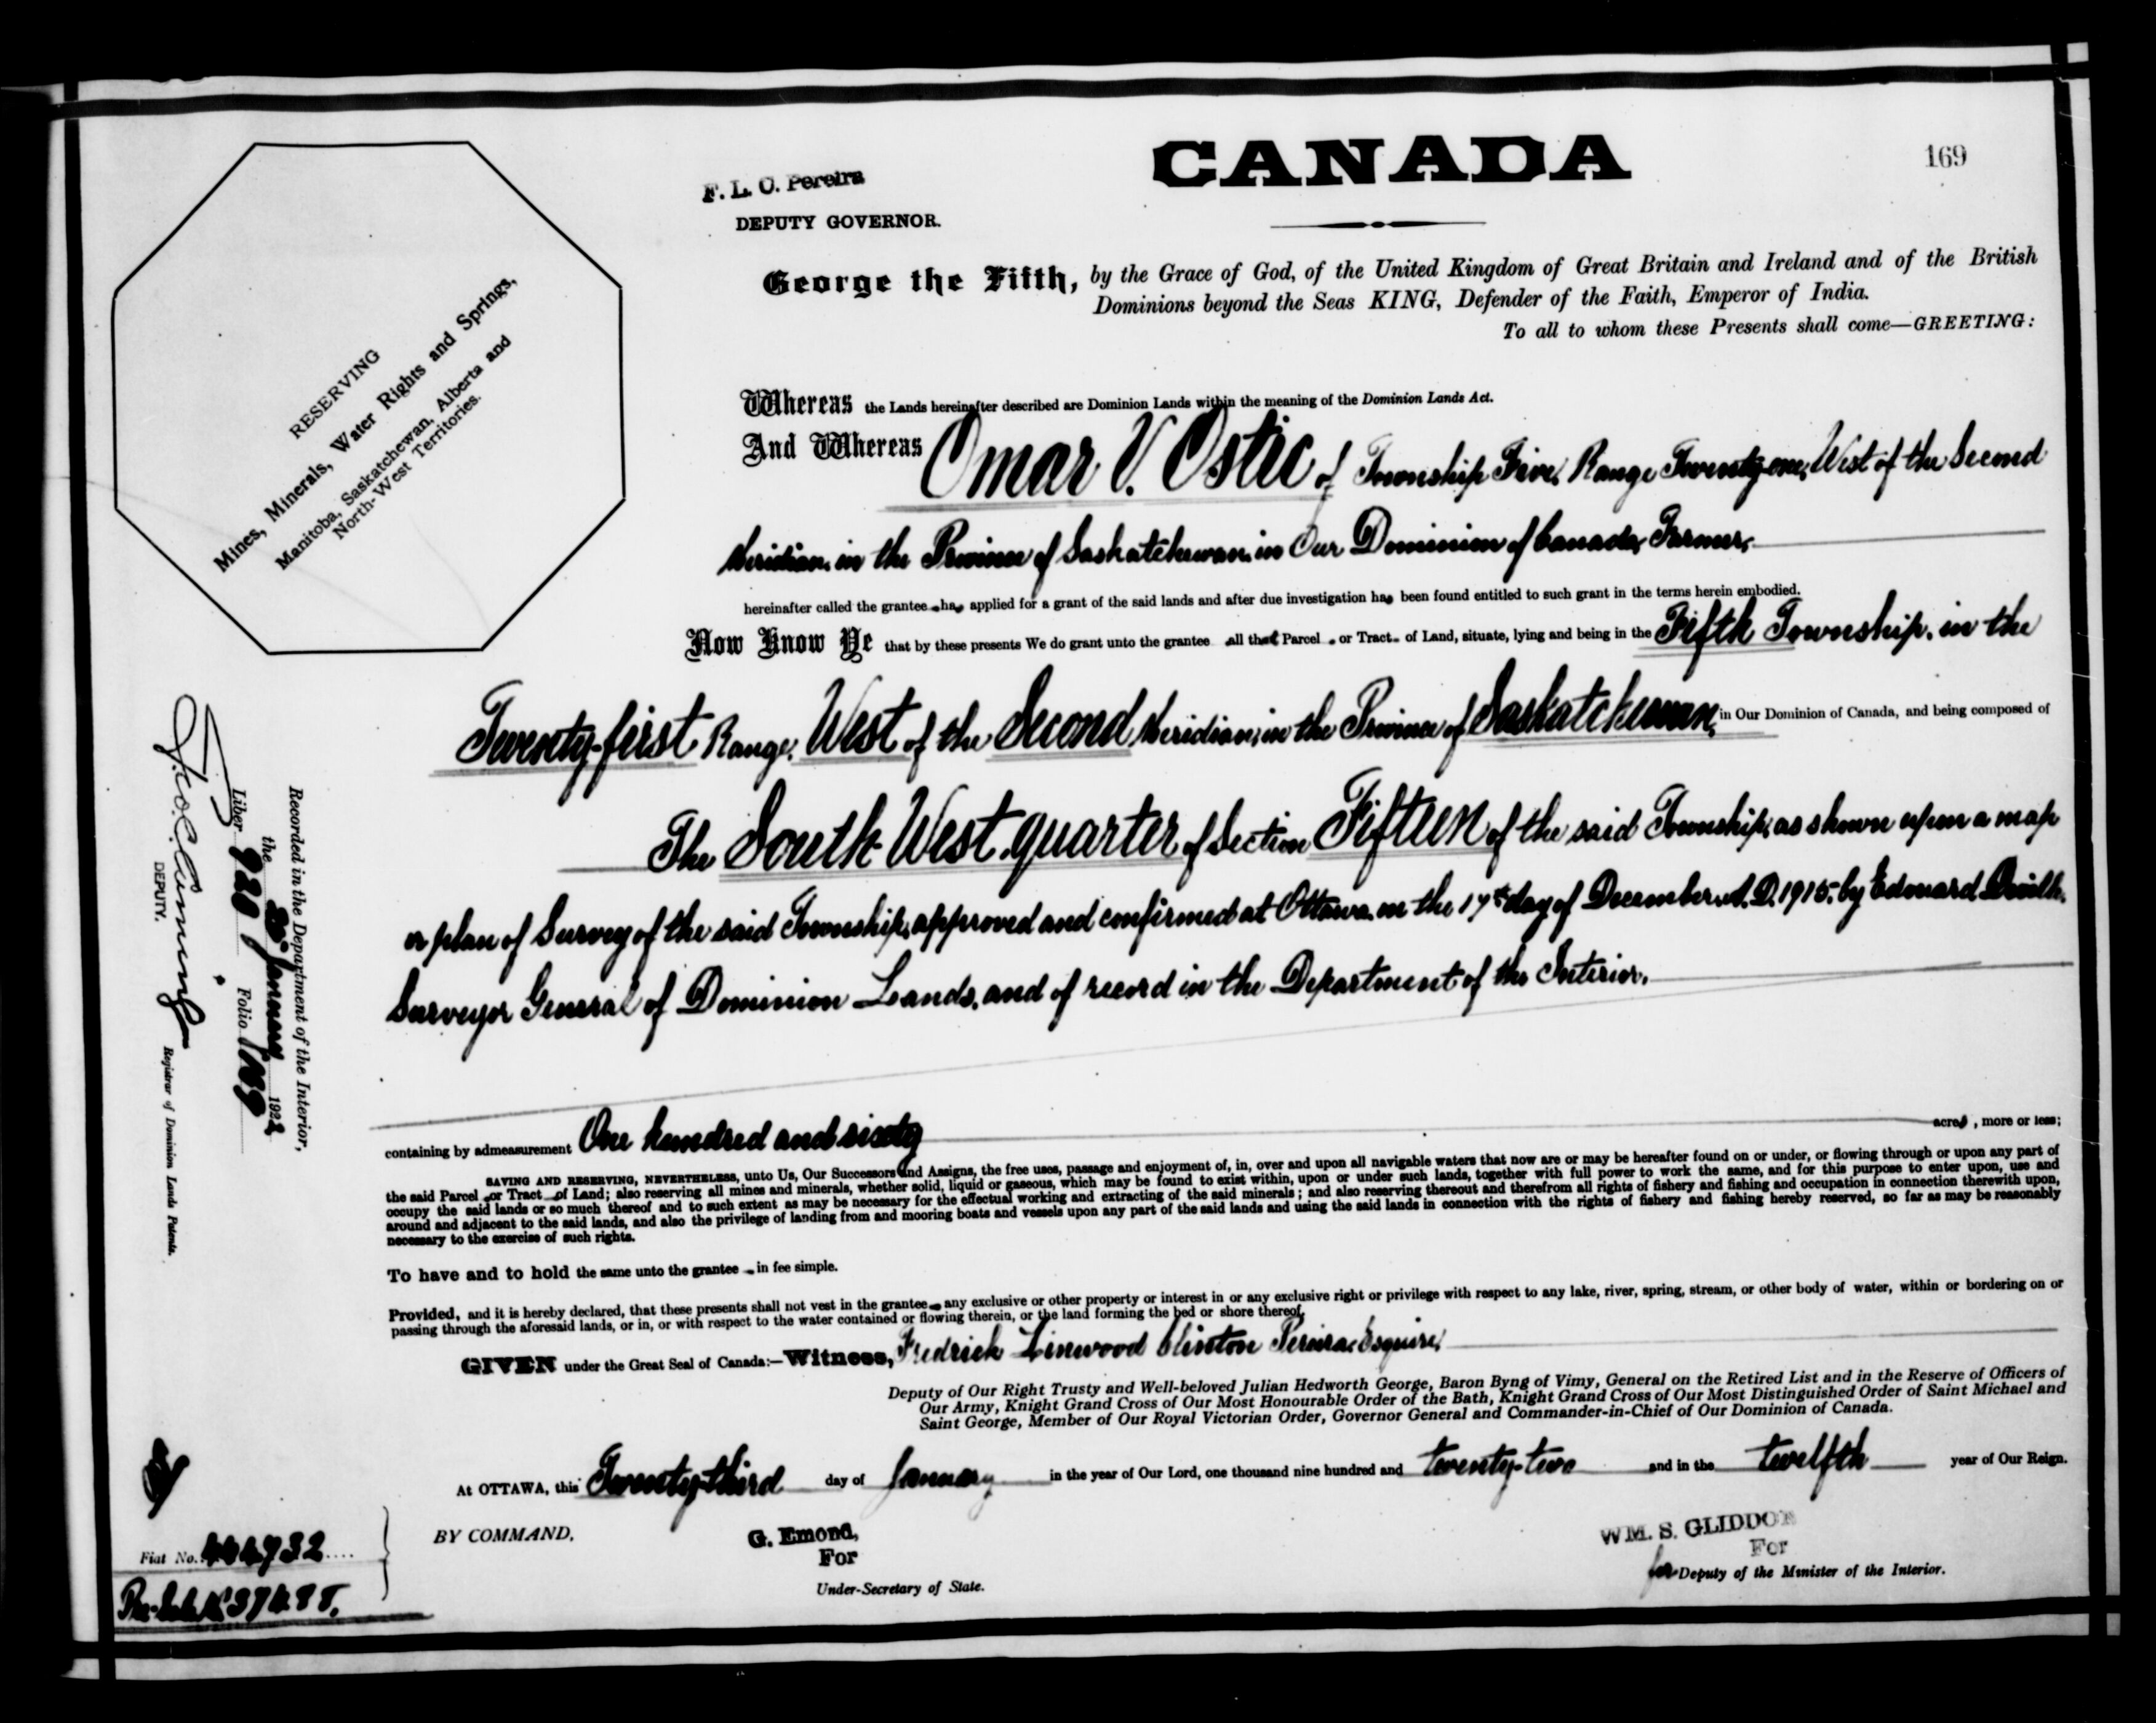 CANADA
169
F. L. C. Pereira
DEPUTY GOVERNOR.
RESERVING
Mines, Minerals, Water Rights and Springs,
Manitoba, Saskatchewan, Alberta and
North-West Territories.
George the Fifth, by the Grace of God, of the United Kingdom of Great Britain and Ireland and of the British
Dominions beyond the Seas KING, Defender of the Faith, Emperor of India.
To all to whom these Presents shall come—GREETING:
Whereas the Lands hereinafter described are Dominion Lands within the meaning of the Dominion Lands Act.
And Whereas Omar V. Ostic of Township Five, Range Twenty-one, West of the Second
Meridian, in the Province of Saskatchewan, in Our Dominion of Canada, Farmer,
hereinafter called the grantee has applied for a grant of the said lands and after due investigation has been found entitled to such grant in the terms herein embodied.
Now Know Ye that by these presents We do grant unto the grantee all that Parcel or Tract of Land, situate, lying and being in the Fifth Township, in the
Twenty-first Range, West of the Second Meridian, in the Province of Saskatchewan, in Our Dominion of Canada, and being composed of
The South West quarter of Section Fifteen of the said Township, as shown upon a map
or plan of Survey of the said Township, approved and confirmed at Ottawa, on the 17th day of December, A.D. 1915, by Edouard Deville,
Surveyor General of Dominion Lands, and of record in the Department of the Interior.
containing by admeasurement One hundred and sixty acres, more or less;
SAVING AND RESERVING, NEVERTHELESS, unto Us, Our Successors and Assigns, the free uses, passage and enjoyment of, in, over and upon all navigable waters that now are or may be hereafter found on or under, or flowing through or upon any part of
the said Parcel or Tract of Land; also reserving all mines and minerals, whether solid, liquid or gaseous, which may be found to exist within, upon or under such lands, together with full power to work the same, and for this purpose to enter upon, use and
occupy the said lands or so much thereof and to such extent as may be necessary for the effectual working and extracting of the said minerals; and also reserving thereout and therefrom all rights of fishery and fishing and occupation in connection therewith upon,
around and adjacent to the said lands, and also the privilege of landing from and mooring boats and vessels upon any part of the said lands and using the said lands in connection with the rights of fishery and fishing hereby reserved, so far as may be reasonably
necessary to the exercise of such rights.
To have and to hold the same unto the grantee in fee simple.
Provided, and it is hereby declared, that these presents shall not vest in the grantee any exclusive or other property or interest in or any exclusive right or privilege with respect to any lake, river, spring, stream, or other body of water, within or bordering on or
passing through the aforesaid lands, or in, or with respect to the water contained or flowing therein, or the land forming the bed or shore thereof.
GIVEN under the Great Seal of Canada:—Witness, Fredrick Linwood Clinton Pereira, Esquire,
Deputy of Our Right Trusty and Well-beloved Julian Hedworth George, Baron Byng of Vimy, General on the Retired List and in the Reserve of Officers of
Our Army, Knight Grand Cross of Our Most Honourable Order of the Bath, Knight Grand Cross of Our Most Distinguished Order of Saint Michael and
Saint George, Member of Our Royal Victorian Order, Governor General and Commander-in-Chief of Our Dominion of Canada.
At OTTAWA, this Twenty-third day of January in the year of Our Lord, one thousand nine hundred and twenty-two and in the twelfth year of Our Reign.
BY COMMAND,
G. Emond,
For
Under-Secretary of State.
WM. S. GLIDDON
For
for Deputy of the Minister of the Interior.
Recorded in the Department of the Interior,
the January 1922
Liber 920 Folio 169
DEPUTY.
Registrar of Dominion Lands Patents.
Fiat No. 444932